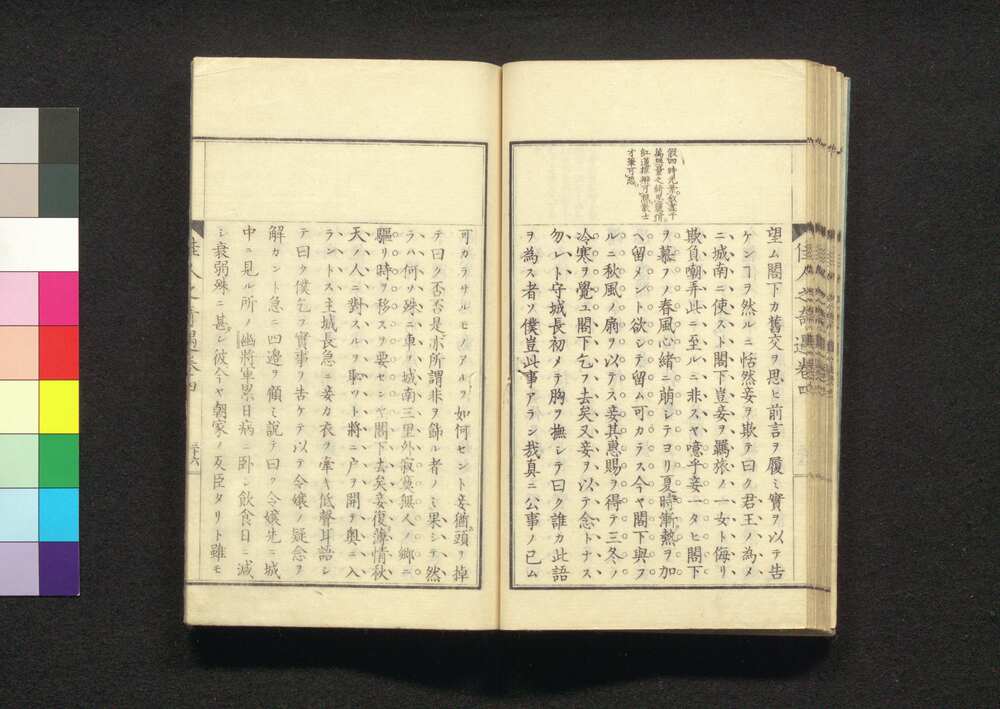 佳人之奇遇卷四
假四時光景敍盡千
萬無量之綺思麗情
紅道摸擬可
才筆可想
望ム閣下カ舊交ヲ思ヒ前言ヲ履ミ實ヲ以テ告
ケンヿヲ然ルニ恬然妾ヲ欺テ曰ク君王ノ為メ
ニ城南ニ使スト閣下豈妾ヲ羈旅ノ一女ト侮リ
欺負嘲弄此ニ至ルニ非スヤ噫乎妾一タヒ閣下
ヲ慕フノ春風心緒ニ萌シテヨリ夏時漸熱ヲ加
ヘ留メント欲シテ留ム可カラス今ヤ閣下與フ
ルニ秋風ノ扇ヲ以テス妾其惠賜ヲ得テ三冬ノ
冷寒ヲ覺ユ閣下乞フ去矣又妾ヲ以テ念トナス
勿レト守城長初メテ胸ヲ撫シテ曰ク誰カ此語
ヲ為ス者ソ僕豈此事アラン我真ニ公事ノ已ム
可カラサルモノアルヲ如何セント妾猶頭ヲ掉
テ曰ク否否是亦所謂非ヲ飾ル者ノミ果シテ然
ラハ何ソ殊ニ車ヲ城南三里外寂寞無人ノ鄉ニ
驅リ時ヲ移スヲ要センヤ閣下去矣妾復薄情秋
天ノ人ニ對スルヲ恥ツト將ニ户ヲ開テ奧ニ入
ラントス主城長急ニ妾カ衣ヲ牽キ低聲耳語シ
テ曰ク僕乞フ實事ヲ吿ケテ以テ令孃ノ疑念ヲ
解カント急ニ四邊ヲ顧ミ說テ曰ク令孃先ニ城
中ニ見ル所ノ幽將軍累日病ニ卧シ飲食日ニ減
シ衰弱殊ニ甚シ彼今ヤ朝家ノ叛臣タリト雖モ
佳人之奇遇卷四
三十六